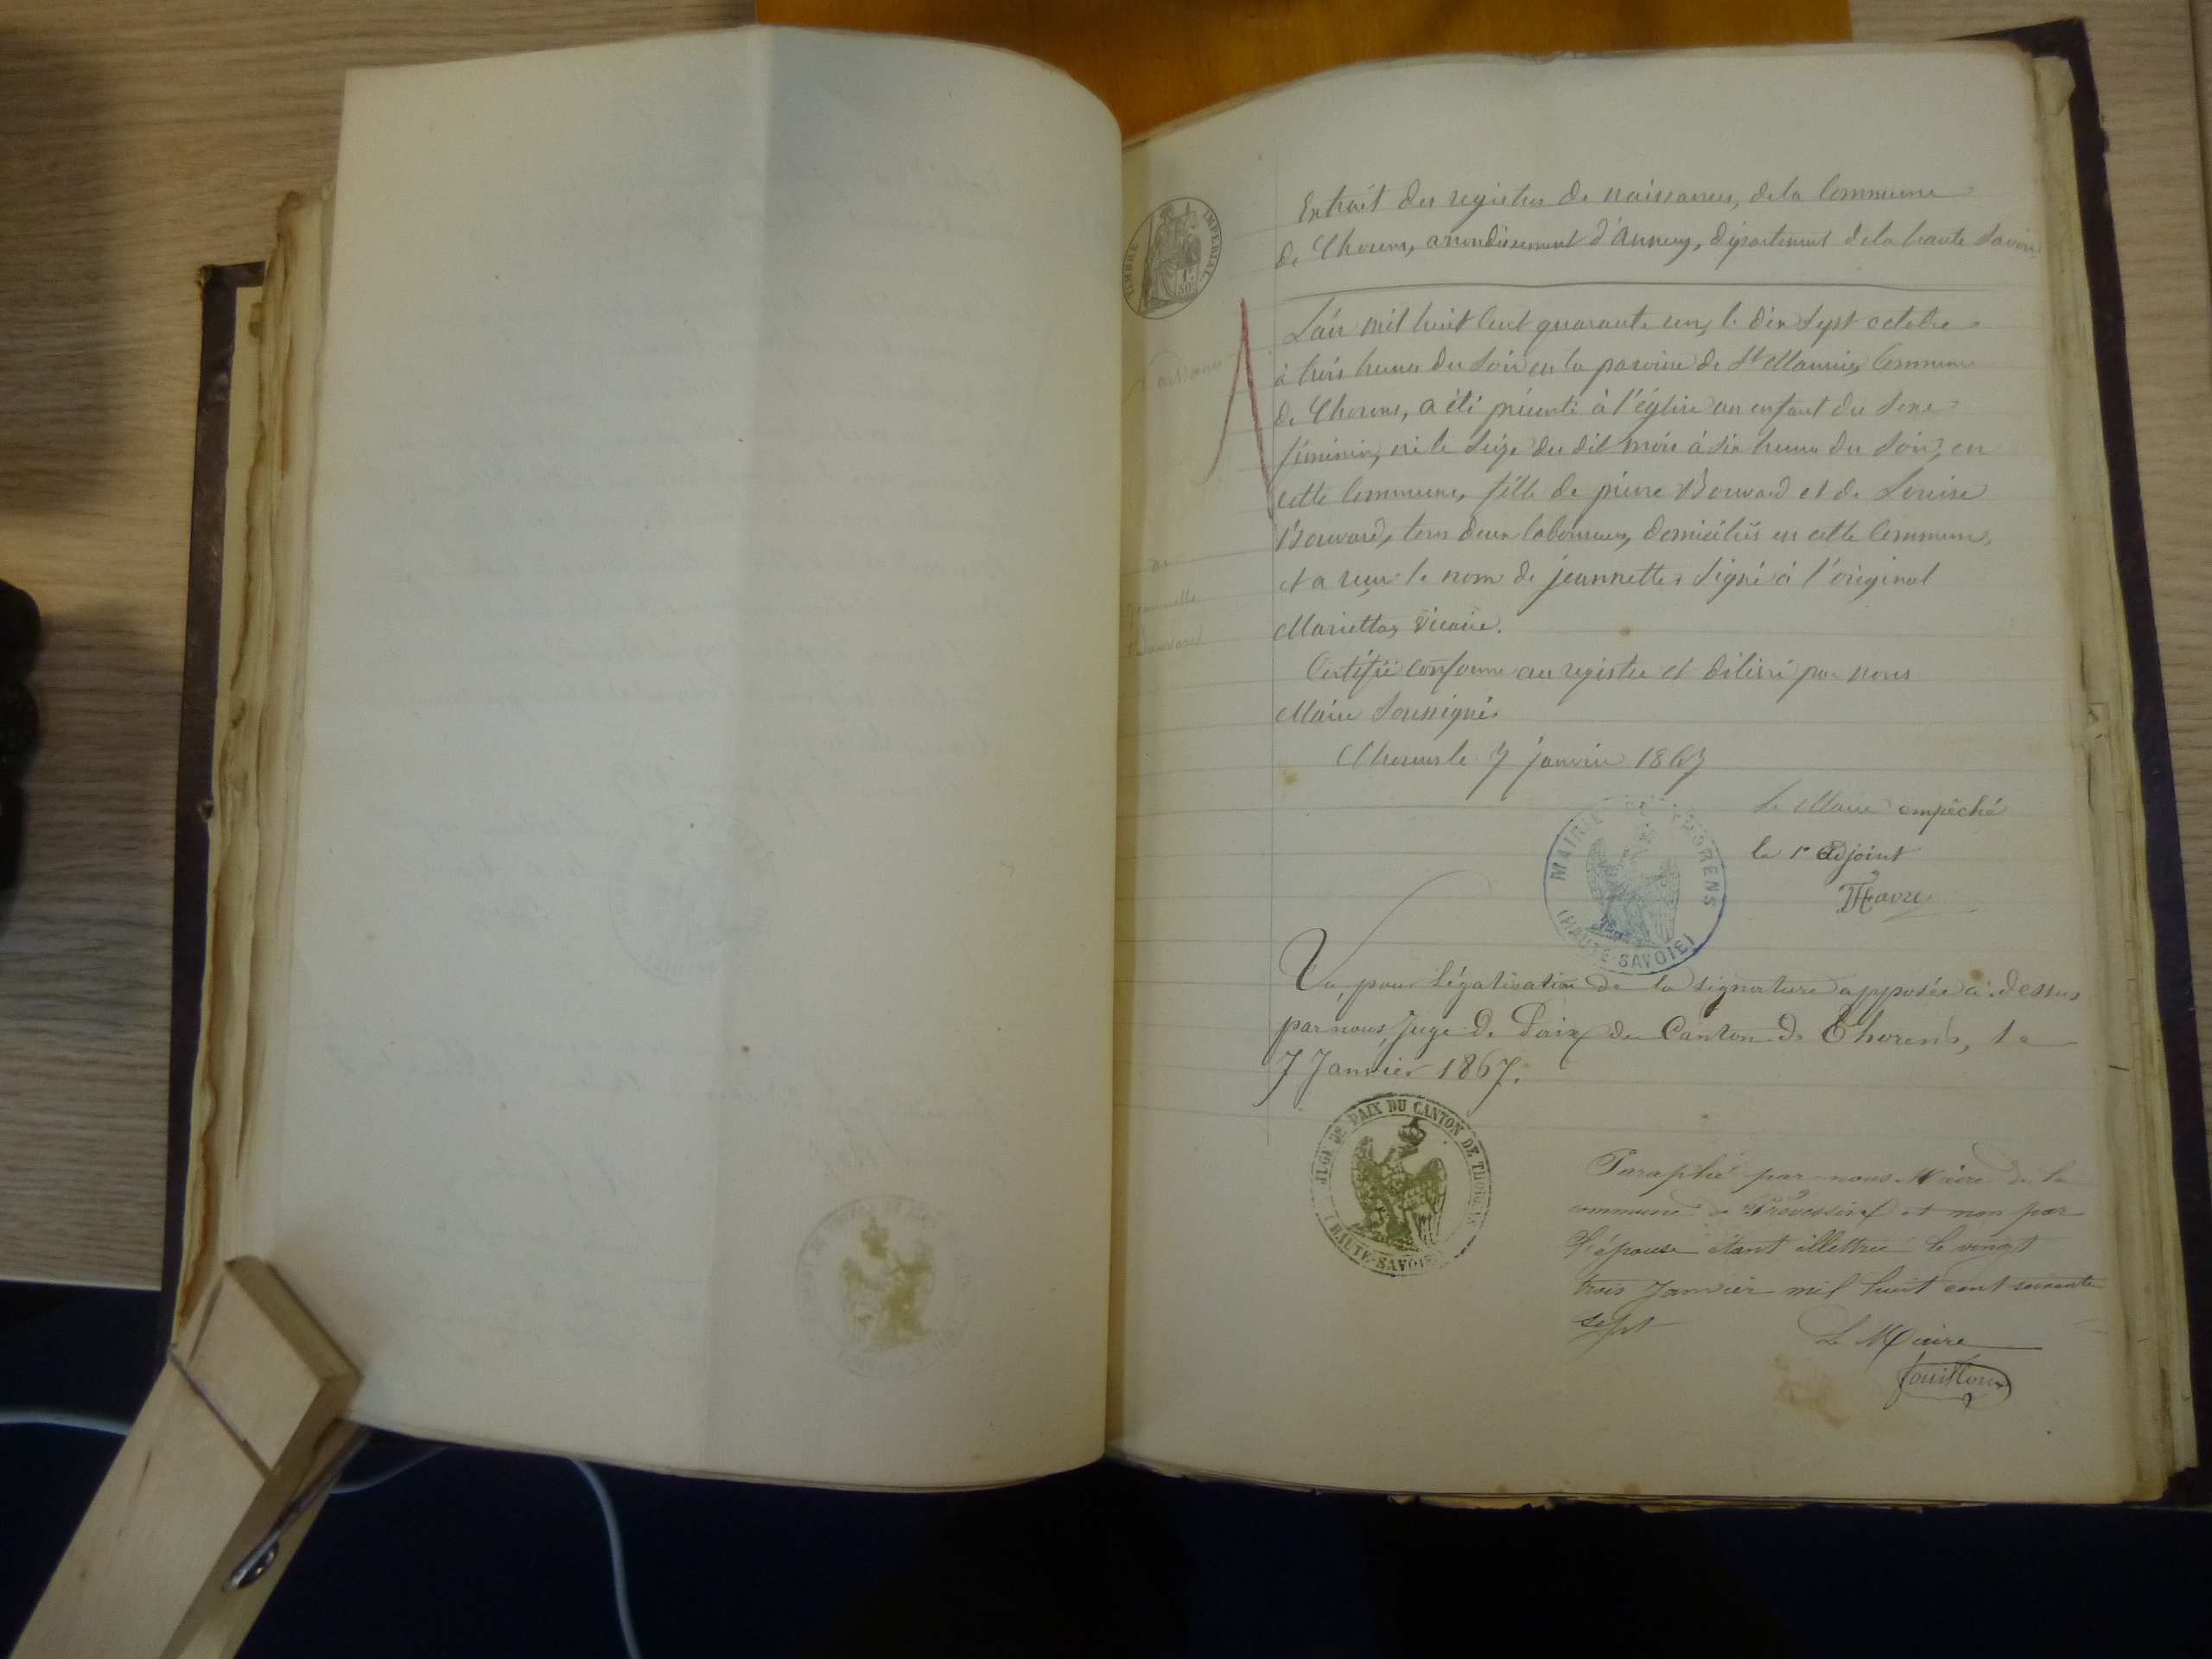 TIMBRE IMPERIAL
1F
50c
Extrait des registres de naissances, de la Commune
de Thorens, arrondissement d'Annecy, département de la haute Savoie
L'an mil huit Cent quarante un, le dix Sept octobre
Naissance
à trois heures du Soir en la paroisse de St Maurice, Commune
de Thorens, a été présenté à l'église un enfant du Sexe
féminin, né le Seize du dit mois à six heures du Soir, en
cette Commune, fille de pierre Bouvard et de Louise
Bouvard, tous deux laboureurs, domiciliés en cette Commune,
de
et a reçu le nom de jeannette, Signé à l'original
Jeannette
Mariettaz Vicaire.
Bouvard
Certifié conforme au registre et délivré par nous
Maire Soussigné
Thorens le 7 janvier 1867
Le Maire empêché
le 1er Adjoint
MAIRIE DE THORENS
(HAUTE-SAVOIE)
Vu, pour légalisation de la signature apposée ci-dessus
par nous, Juge de Paix du Canton de Thorens, le
7 Janvier 1867.
JUGE DE PAIX DU CANTON DE THORENS
(HAUTE-SAVOIE)
Paraphé par nous Maire de la
commune de Prevessin et non par
l'épouse étant illettrée le vingt
trois Janvier mil huit cent soixante
sept
Le Maire